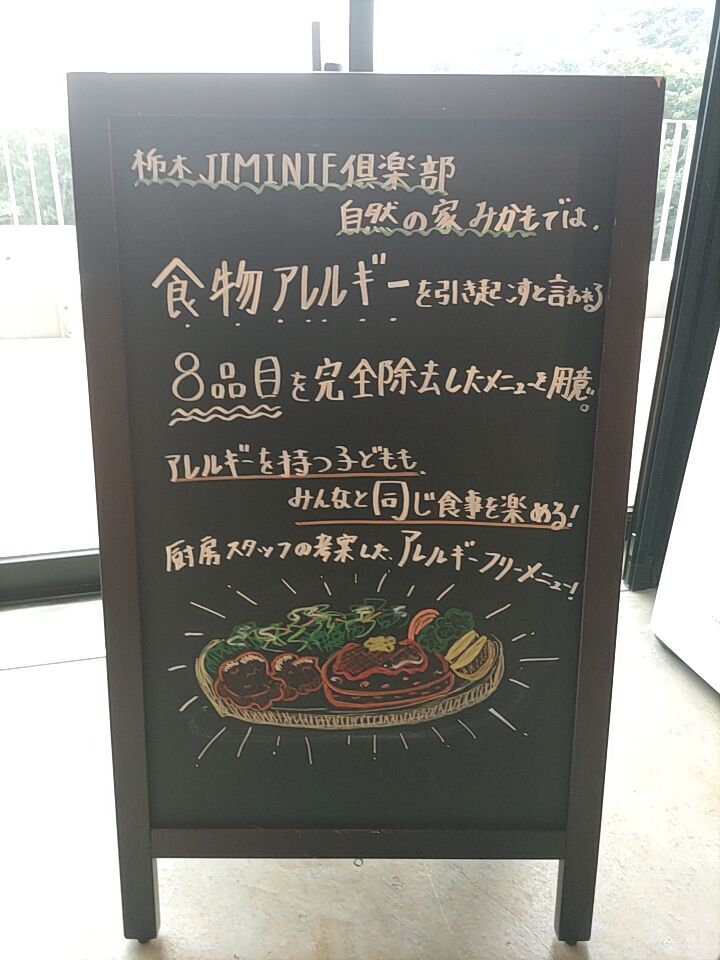 栃木JIMINIE倶楽部
自然の家みかもでは、
食物アレルギーを引き起こすと言われる
8品目を完全除去したメニューを用意。
アレルギーを持つ子どもも、
みんなと同じ食事を楽める!
厨房スタッフの考案した、アレルギーフリーメニュー!